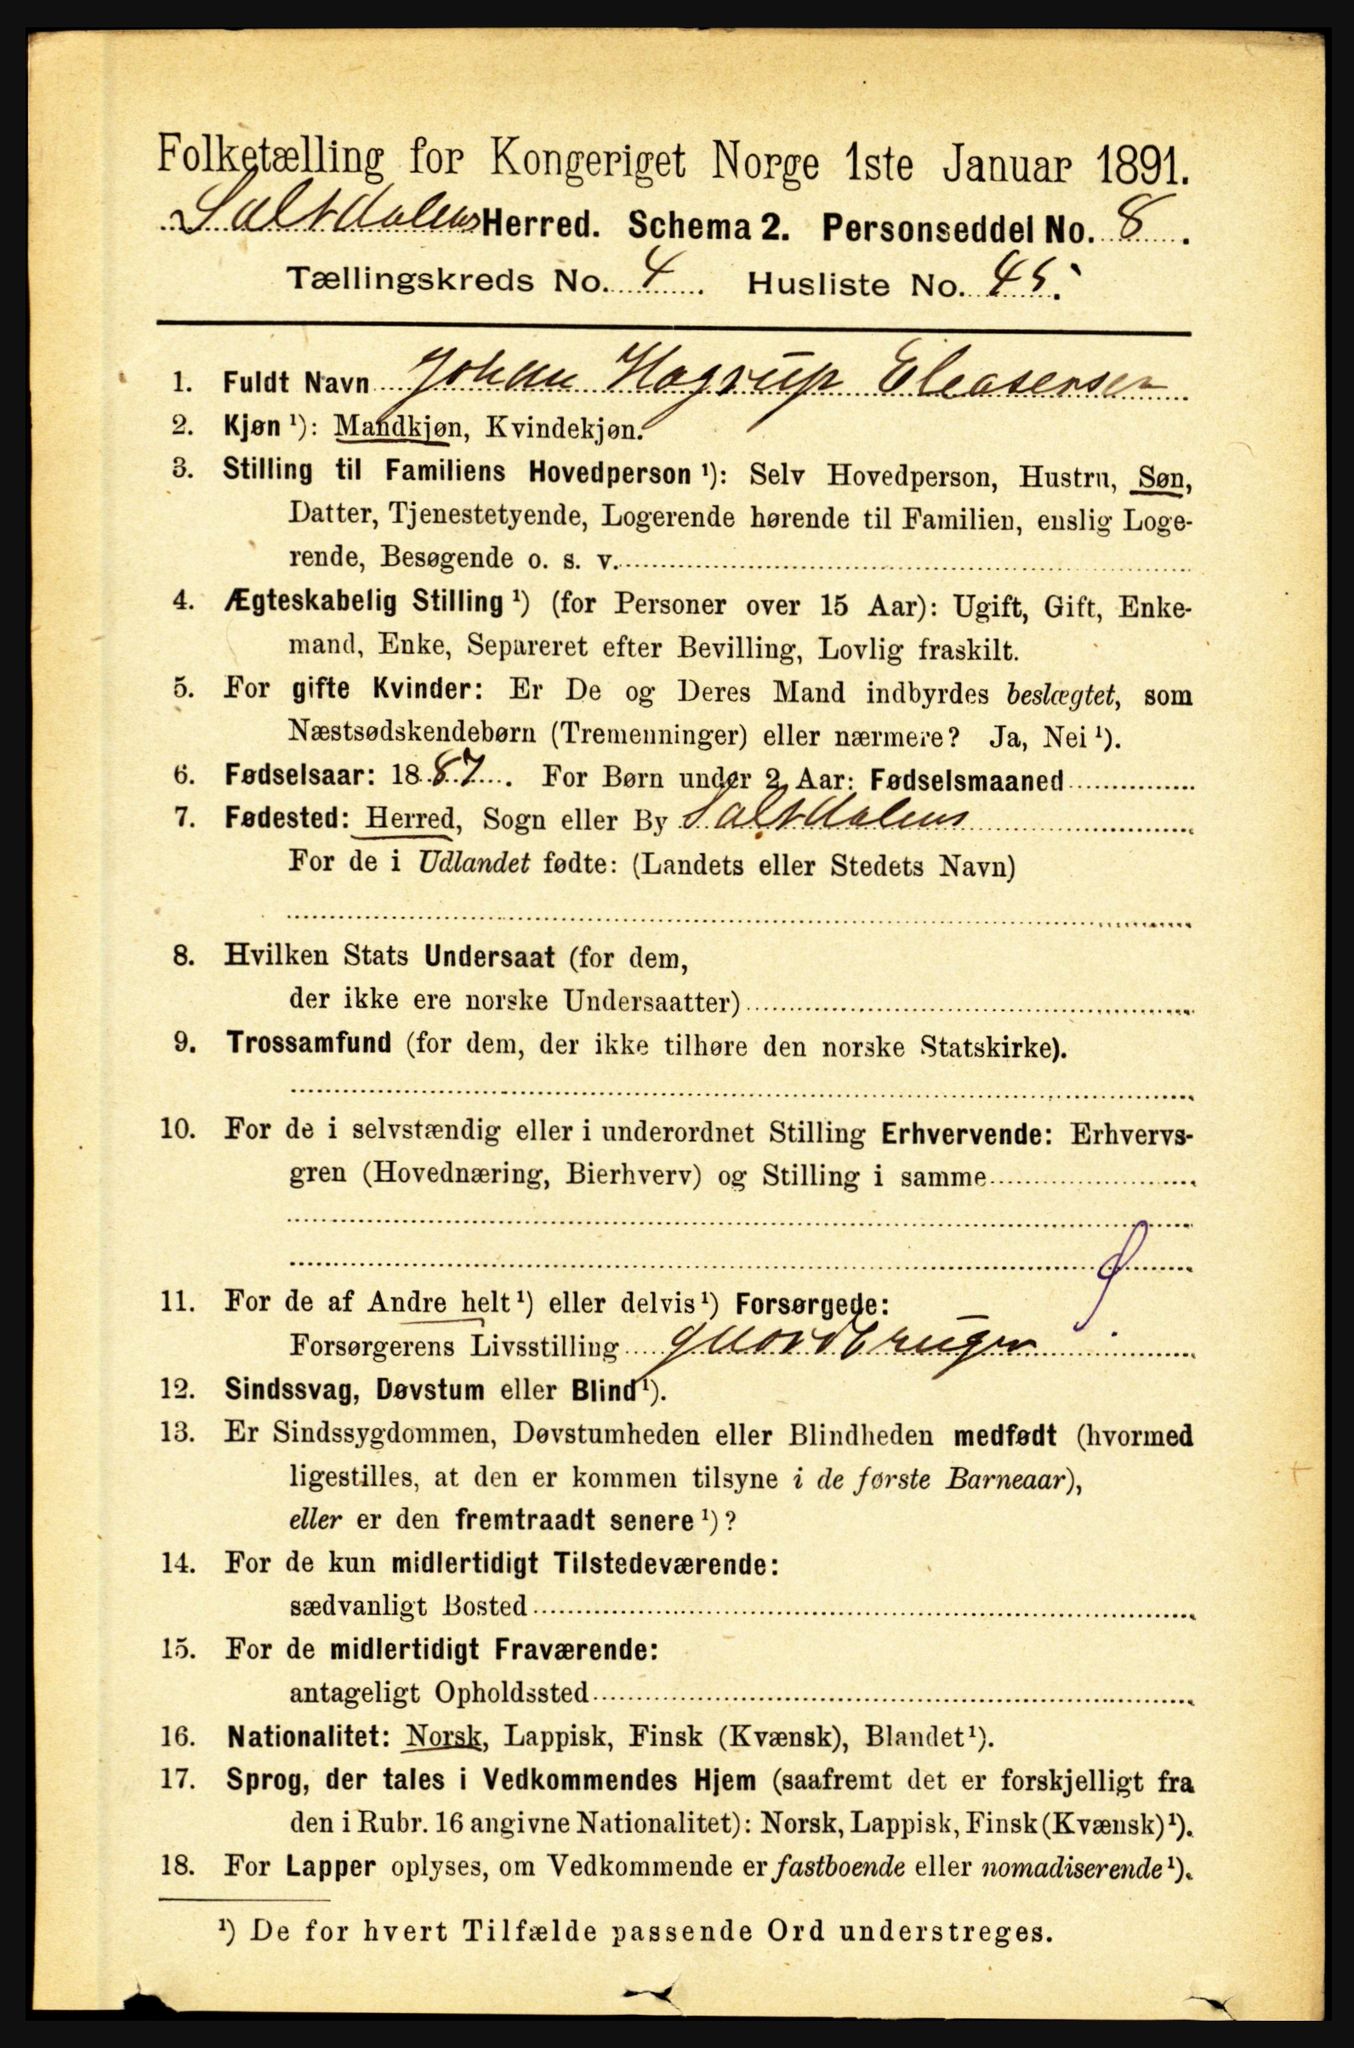 Folketælling for Kongeriget Norge 1ste Januar 1891.
Saltdalens Herred. Schema 2. Personseddel No. 8.
Tællingskreds No. 4 Husliste No. 45.
1. Fuldt Navn Johan Hagrup Eleasersen
2. Kjøn ¹): Mandkjøn, Kvindekjøn.
3. Stilling til Familiens Hovedperson ¹): Selv Hovedperson, Hustru, Søn,
Datter, Tjenestetyende, Logerende hørende til Familien, enslig Loge-
rende, Besøgende o. s. v.
4. Ægteskabelig Stilling ¹) (for Personer over 15 Aar): Ugift, Gift, Enke-
mand, Enke, Separeret efter Bevilling, Lovlig fraskilt.
5. For gifte Kvinder: Er De og Deres Mand indbyrdes beslægtet, som
Næstsødskendebørn (Tremenninger) eller nærmere? Ja, Nei ¹).
6. Fødselsaar: 1887. For Børn under 2 Aar: Fødselsmaaned
7. Fødested: Herred, Sogn eller By Saltdalens
For de i Udlandet fødte: (Landets eller Stedets Navn)
8. Hvilken Stats Undersaat (for dem,
der ikke ere norske Undersaatter)
9. Trossamfund (for dem, der ikke tilhøre den norske Statskirke).
10. For de i selvstændig eller i underordnet Stilling Erhvervende: Erhvervs-
gren (Hovednæring, Bierhverv) og Stilling i samme
11. For de af Andre helt ¹) eller delvis ¹) Forsørgede:
Forsørgerens Livsstilling Gaardbruger
12. Sindssvag, Døvstum eller Blind ¹).
13. Er Sindssygdommen, Døvstumheden eller Blindheden medfødt (hvormed
ligestilles, at den er kommen tilsyne i de første Barneaar),
eller er den fremtraadt senere ¹)?
14. For de kun midlertidigt Tilstedeværende:
sædvanligt Bosted
15. For de midlertidigt Fraværende:
antageligt Opholdssted
16. Nationalitet: Norsk, Lappisk, Finsk (Kvænsk), Blandet ¹).
17. Sprog, der tales i Vedkommendes Hjem (saafremt det er forskjelligt fra
den i Rubr. 16 angivne Nationalitet): Norsk, Lappisk, Finsk (Kvænsk) ¹).
18. For Lapper oplyses, om Vedkommende er fastboende eller nomadiserende ¹).
¹) De for hvert Tilfælde passende Ord understreges.